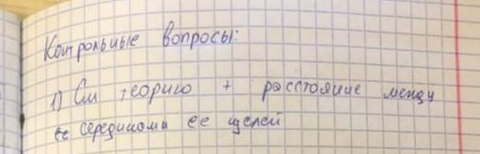 Контрольные вопросы:
1) См теорию + расстояние между
ее серединами ее щелей